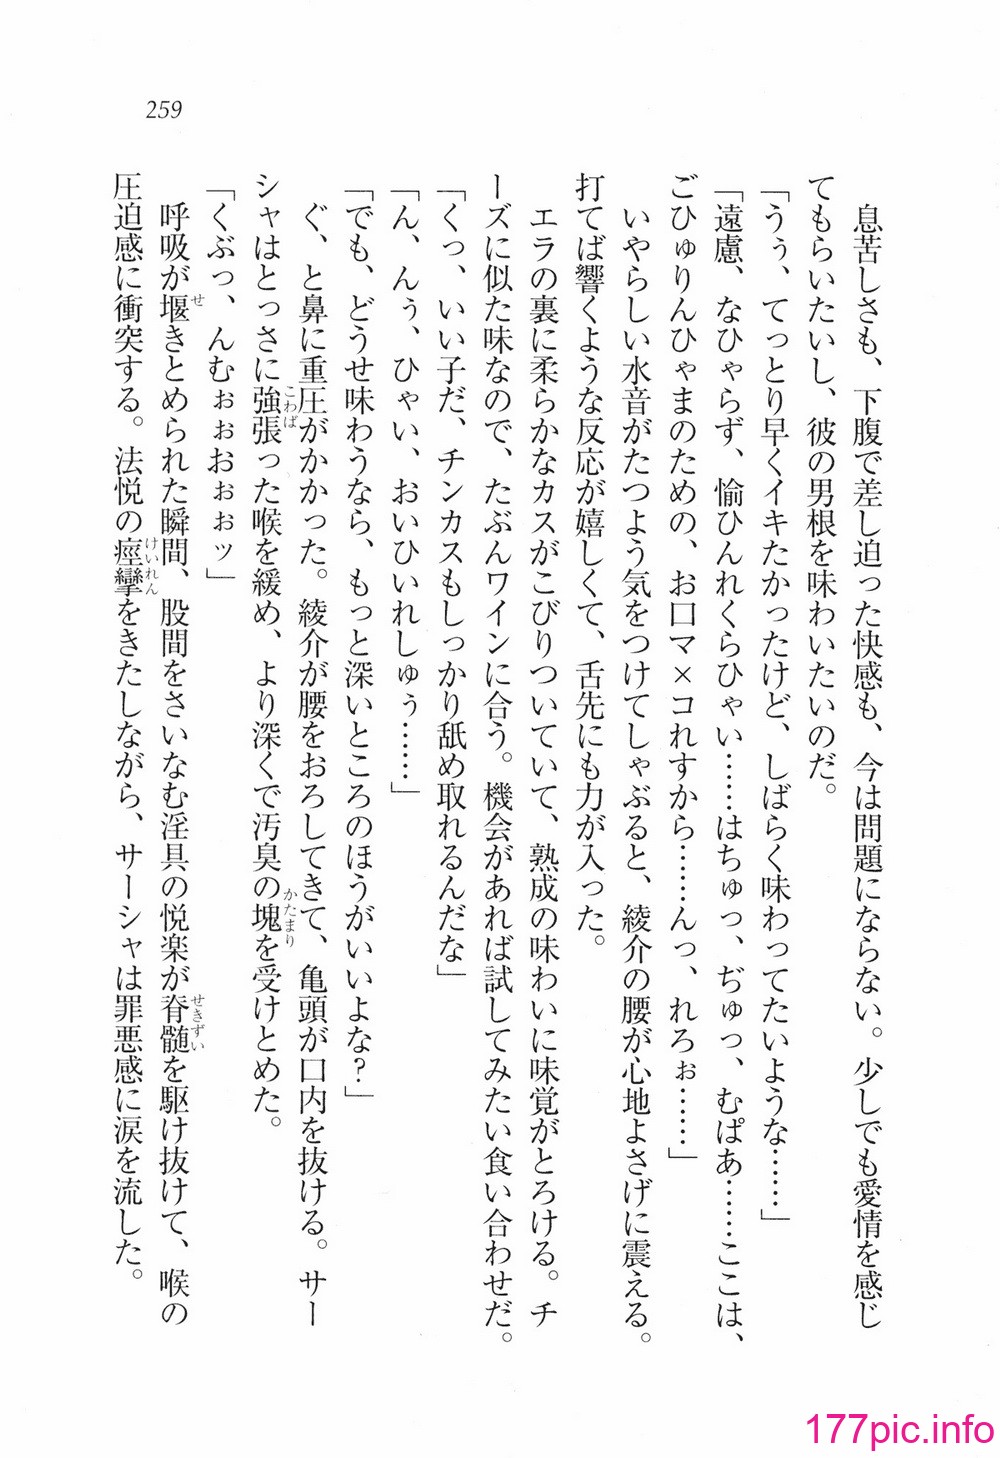 259
息苦しさも、下腹で差し迫った快感も、今は問題にならない。少しでも愛情を感じ
てもらいたいし、彼の男根を味わいたいのだ。
「うぅ、てっとり早くイキたかったけど、しばらく味わってたいような……」
「遠慮、なひゃらず、愉ひんれくらひゃい……はちゅっ、ぢゅっ、むぱあ……ここは、
ごひゅりんひゃまのための、お口マ×コれすから……んっ、れろぉ……」
いやらしい水音がたつよう気をつけてしゃぶると、綾介の腰が心地よさげに震える。
打てば響くような反応が嬉しくて、舌先にも力が入った。
エラの裏に柔らかなカスがこびりついていて、熟成の味わいに味覚がとろける。チ
ーズに似た味なので、たぶんワインに合う。機会があれば試してみたい食い合わせだ。
「くっ、いい子だ、チンカスもしっかり舐め取れるんだな」
「ん、んぅ、ひゃい、おいひいれしゅぅ……」
「でも、どうせ味わうなら、もっと深いところのほうがいいよな?」
ぐ、と鼻に重圧がかかった。綾介が腰をおろしてきて、亀頭が口内を抜ける。サー
こわば
かたまり
シャはとっさに強張った喉を緩め、より深くで汚臭の塊を受けとめた。
「くぶっ、んむぉぉおぉぉッ」
せ
せきずい
呼吸が堰きとめられた瞬間、股間をさいなむ淫具の悦楽が脊髄を駆け抜けて、喉の
けいれん
圧迫感に衝突する。法悦の痙攣をきたしながら、サーシャは罪悪感に涙を流した。
177pic.info